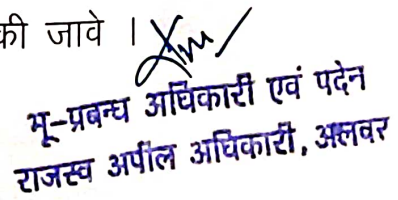 की जावे ।
भू-प्रबन्ध अधिकारी एवं पदेन
राजस्व अपील अधिकारी, अलवर